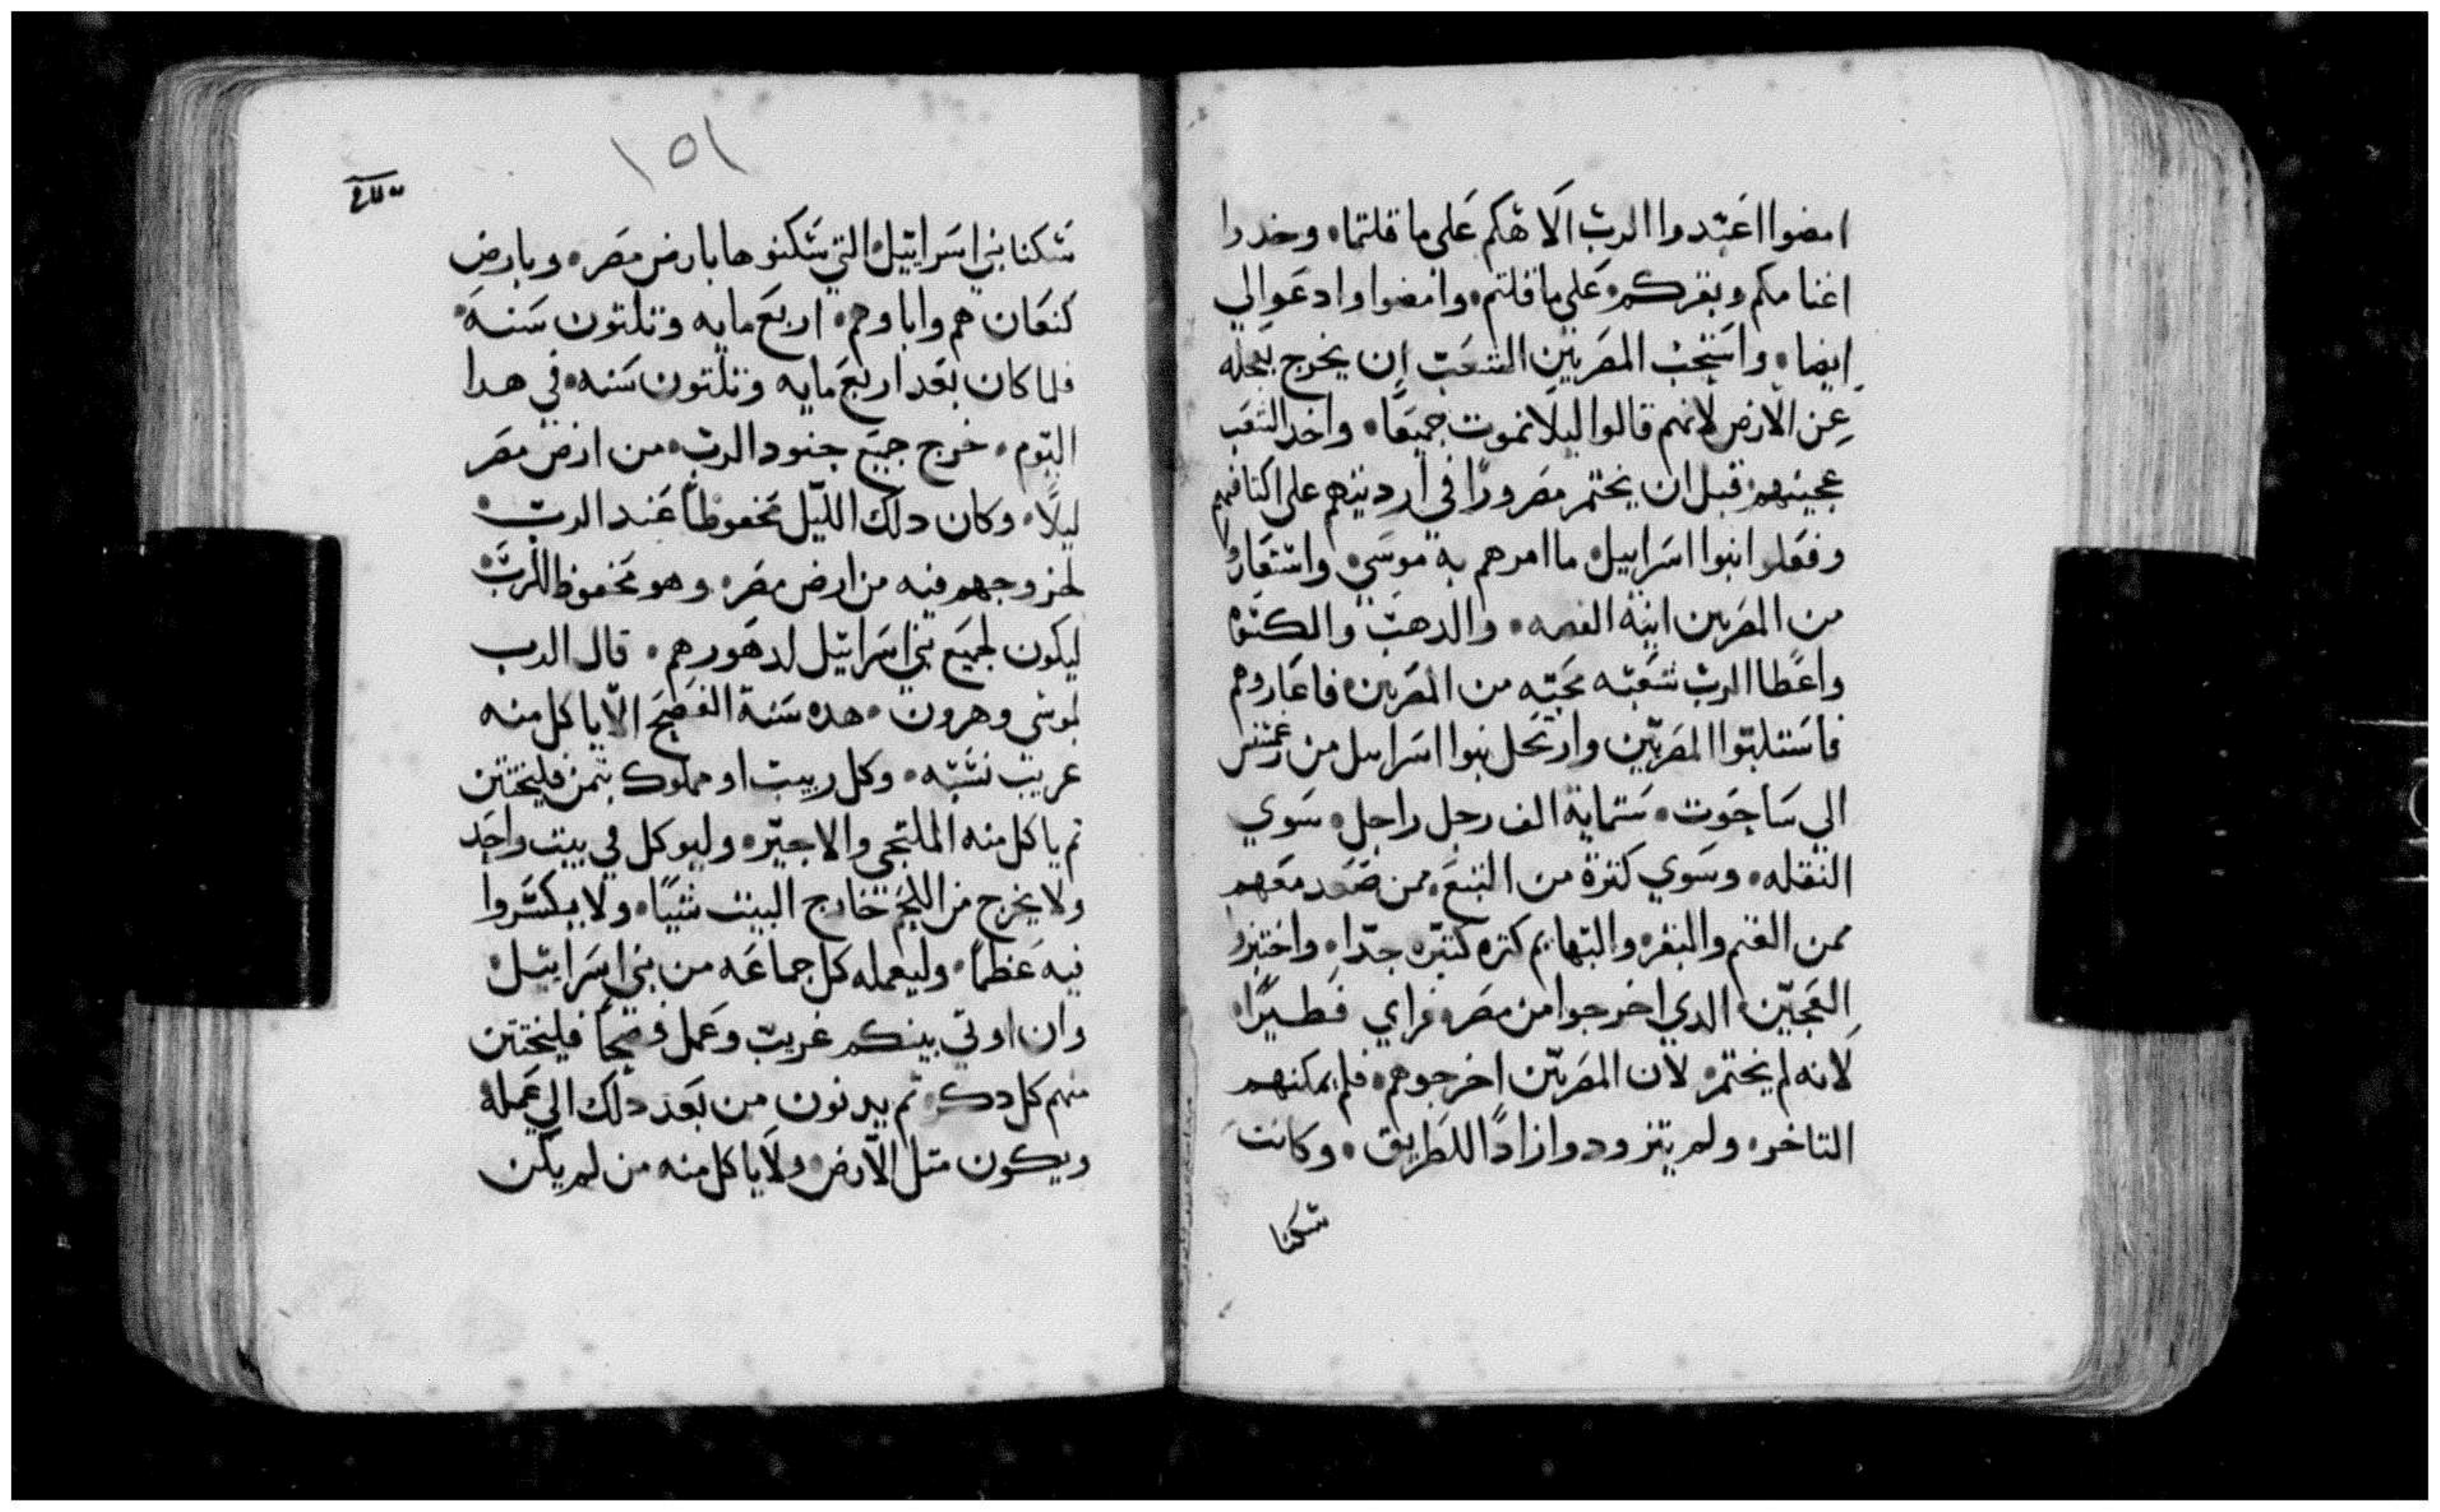 امضوا اعبدوا الرب الاهكم على ما قلتما • وخدوا
اغنامكم وبقركم • على ما قلتم • وامضوا وادعوا لي
ايضا • واستحث المصريين الشعب ان يخرج بعجله
عن الارض لانهم قالوا ليلا نموت جميعًا • واخد الشعب
عجينهم قبل ان يختمر مصرورًا في ارديتهم على اكتافهم
وفعلوا بنوا اسراييل ما امرهم به موسي • واستعاروا
من المصريين انية الفضه • والدهب والكسوة
واعطا الرب شعبه محبه من المصريين فاعاروهم
فاستلبوا المصريين وارتحل بنوا اسراييل من رعمسس
الي ساجوت • ستماية الف رجل راجل • سوي
النقله • وسوي كترة من التبع • ممن صعد معهم
ممن الغنم والبقر والبهايم كتره كتيره جدًا • واختبزوا
العجين • الدي اخرجوا من مصر • فراي فطيرًا •
لانه لم يختمر • لان المصريين اخرجوهم • فلم يمكنهم
التاخر • ولم يتزودوا زادًا للطريق • وكانت
سكنا
١٥١
سكنا بني اسراييل • التي سكنوها بارض مصر • وبارض
كنعان هم واباوهم • اربع مايه وتلتون سنة •
فلما كان بعد اربع مايه وتلتون سنه • في هدا
اليوم • خرج جميع جنود الرب • من ارض مصر
ليلًا • وكان دلك الليل محفوظًا عند الرب •
لخروجهم فيه من ارض مصر • وهو محفوظ للرب •
ليكون لجميع بني اسراييل لدهورهم • قال الرب
لموسى وهرون • هده سنة الفصح الّا ياكل منه
غريب نسبه • وكل ربيب او مملوك بتمن فليختتن
تم ياكل منه الملتجي والاجير • وليوكل في بيت واحد
ولا يخرج من اللحم خارج البيت شيًا • ولا يكسروا
فيه عظمًا • وليعمله كل جماعه من بني اسراييل •
وان اوتي بينكم غريب وعمل فصحًا فليختتن
منهم كل دكر • تم يدنون من بعد دلك الي عمله
ويكون متل الارض • ولا ياكل منه من لم يكن